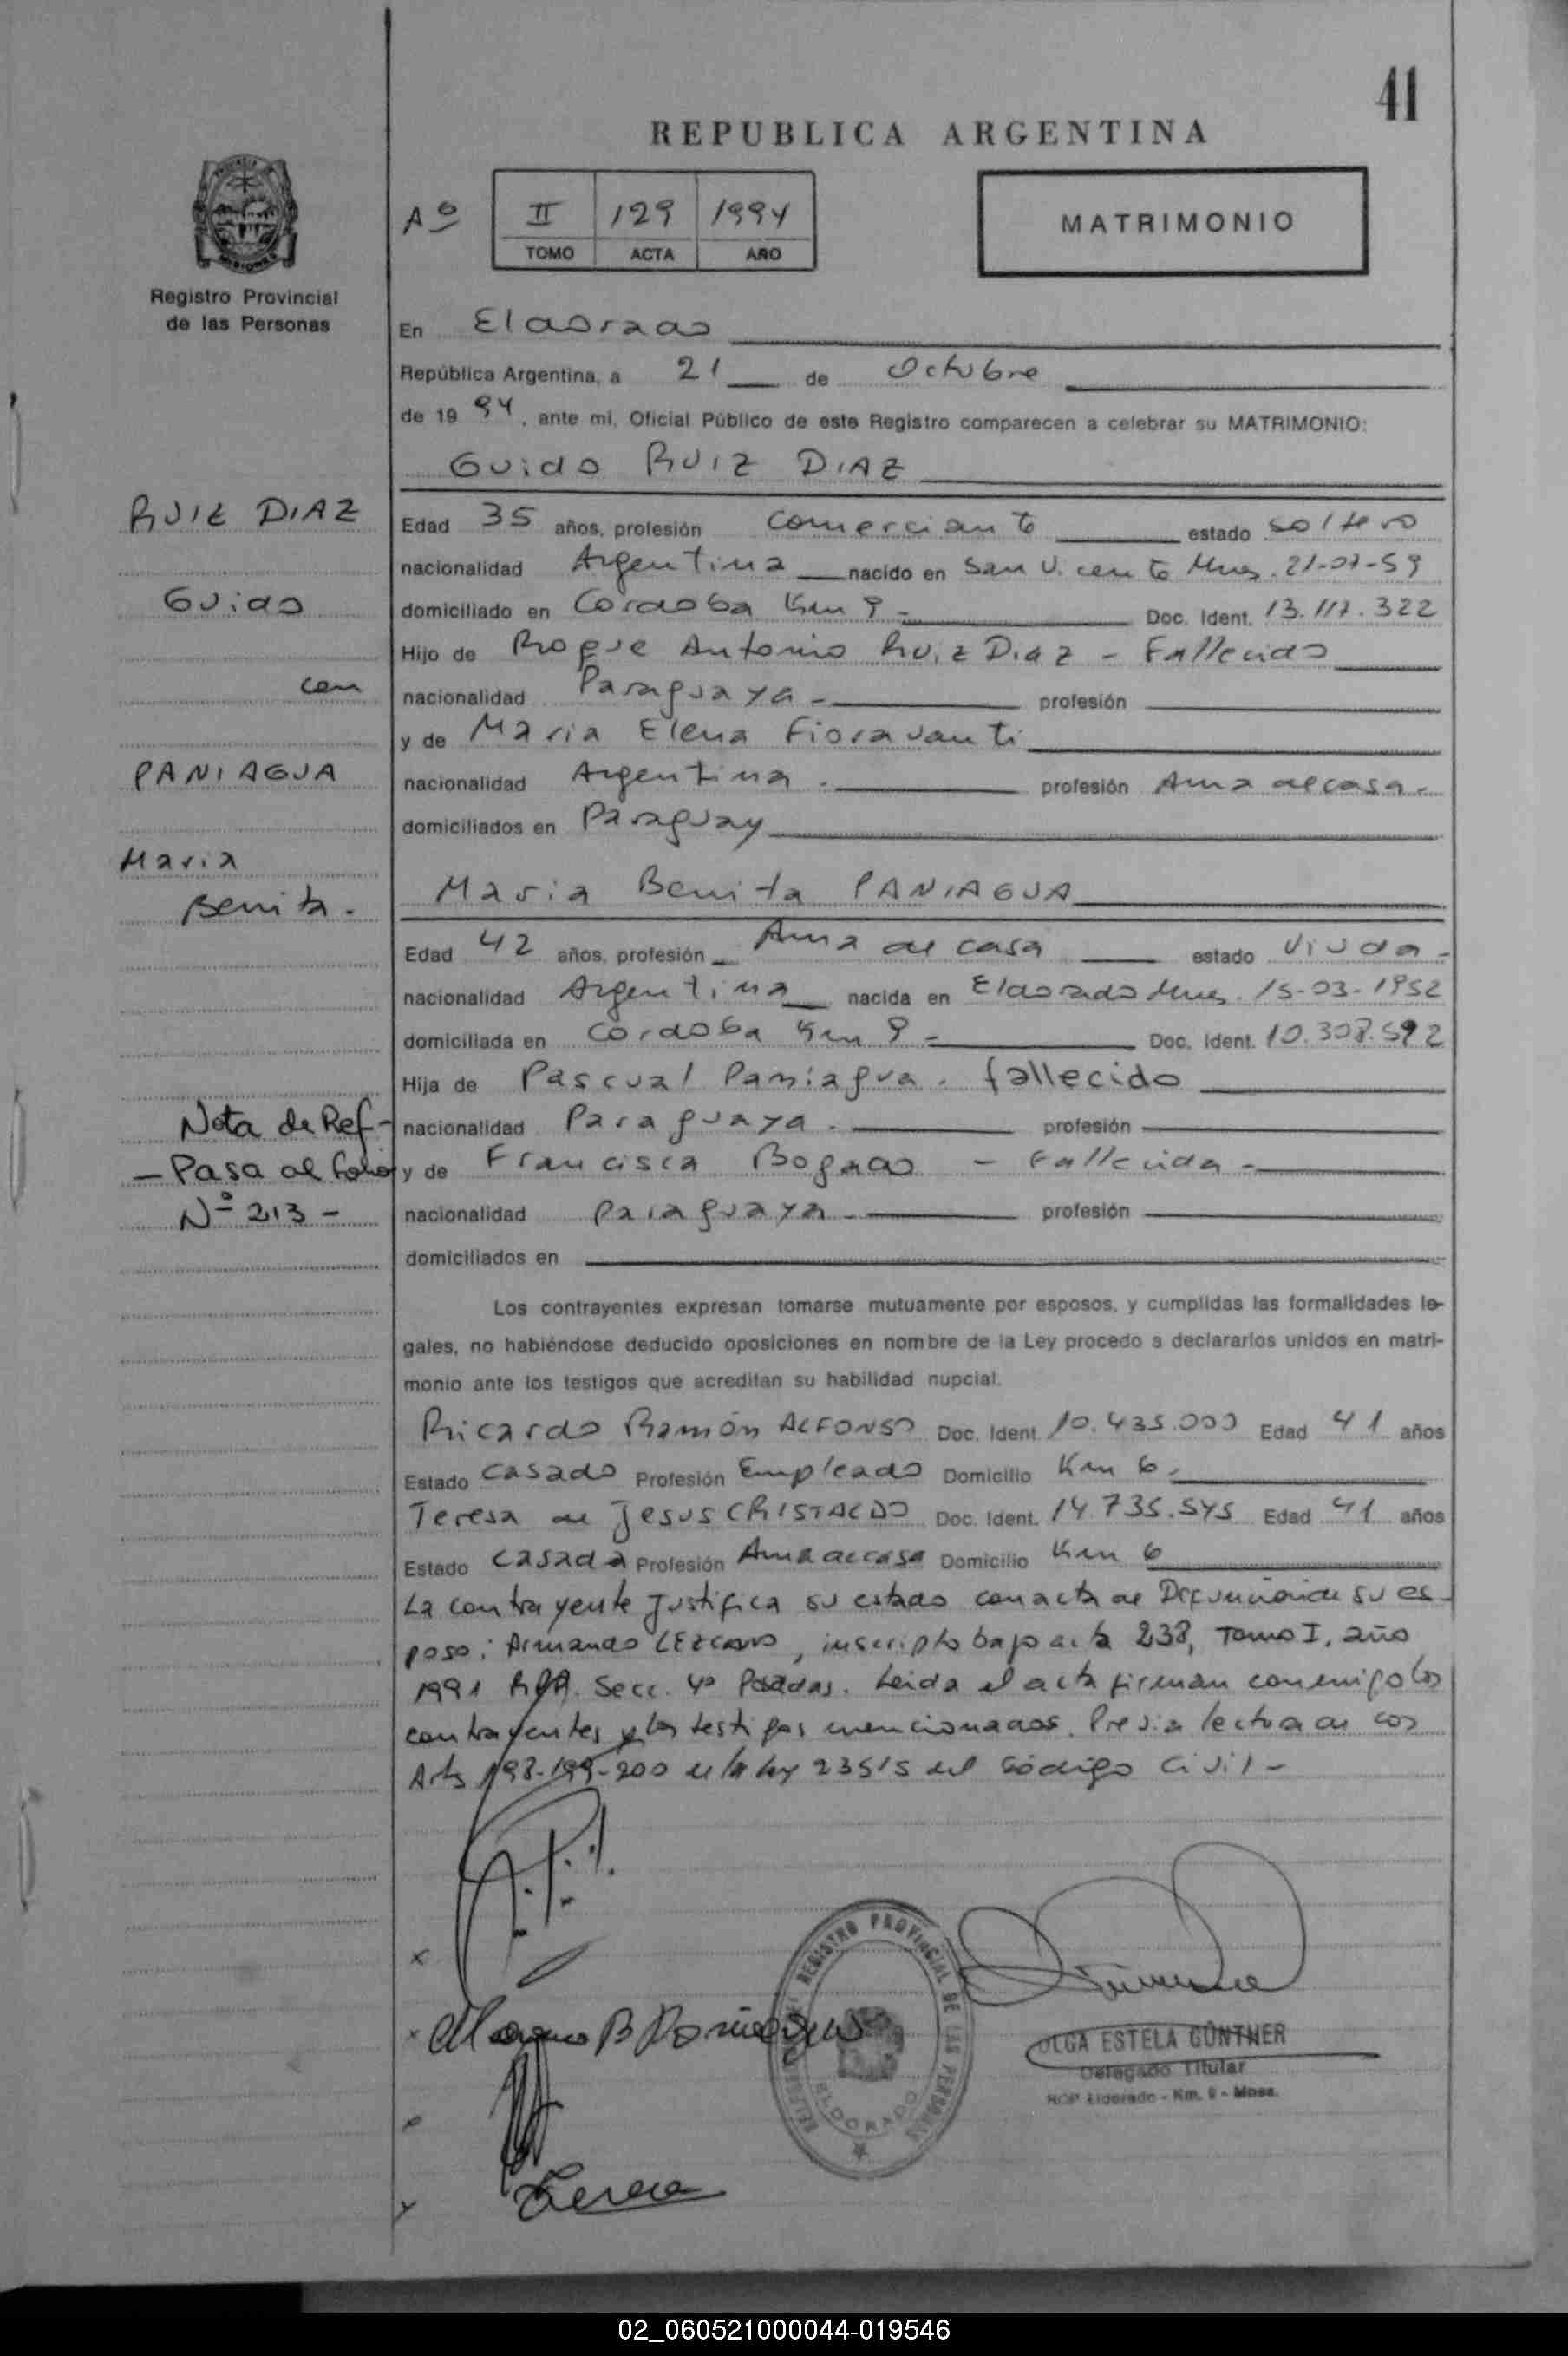 41
REPUBLICA ARGENTINA
Aº
II 129 1994
TOMO ACTA AÑO
MATRIMONIO
Registro Provincial
de las Personas
En Eldorado
República Argentina, a 21 de Octubre
de 19 94, ante mi, Oficial Público de este Registro comparecen a celebrar su MATRIMONIO:
Guido RUIZ DIAZ
RUIZ DIAZ
Guido
con
PANIAGUA
Maria
Benita.
Nota de Ref-
- Pasa al folio
Nº 213 -
Edad 35 años, profesión Comerciante estado soltero
nacionalidad Argentina nacido en San Vicente Mnes. 21-07-59
domiciliado en Cordoba Km 9 - Doc. Ident. 13.117.322
Hijo de Roque Antonio Ruiz Diaz - Fallecido
nacionalidad Paraguaya - profesión
y de Maria Elena Fioravanti
nacionalidad Argentina. profesión Ama de casa.
domiciliados en Paraguay
Maria Benita PANIAGUA
Edad 42 años, profesión Ama de casa estado Viuda -
nacionalidad Argentina nacida en Eldorado Mnes. 15-03-1952
domiciliada en Cordoba Km 9 - Doc. Ident. 10.308.592
Hija de Pascual Paniagua. fallecido
nacionalidad Paraguaya. profesión
y de Francisca Bogado - Fallecida -
nacionalidad paraguaya - profesión
domiciliados en
Los contrayentes expresan tomarse mutuamente por esposos, y cumplidas las formalidades le-
gales, no habiéndose deducido oposiciones en nombre de la Ley procedo a declararlos unidos en matri-
monio ante los testigos que acreditan su habilidad nupcial.
Ricardo Ramón ALFONSO Doc. Ident. 10.435.000 Edad 41 años
Estado Casado Profesión Empleado Domicilio Km 6.
Teresa de Jesus CRISTALDO Doc. Ident. 14.735.545 Edad 41 años
Estado Casada Profesión Ama de casa Domicilio Km 6
La contrayente Justifica su estado con acta de Defuncion de su es-
poso: Armando LEZCANO, inscripto bajo acta 238, Tomo I, año
1991 Secc. 4ª Posadas. Leida el acta firman conmigo los
contrayentes y los testigos mencionados. Previa lectura de los
Arts 198-199-200 de la ley 23515 del Código Civil -
REGISTRO PROVINCIAL DE LAS PERSONAS
ELDORADO
OLGA ESTELA GÜNTHER
Delegado Titular
RCP Eldorado - Km. 9 - Mnes.
Teresa
02_060521000044-019546